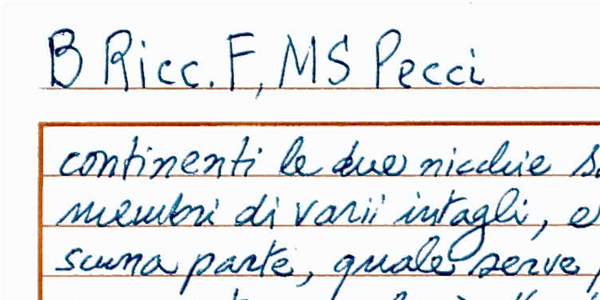 B Ricc. F, MS Pecci
continenti le due nicchie
membri di varii intagli, e
scuna parte, quale serve